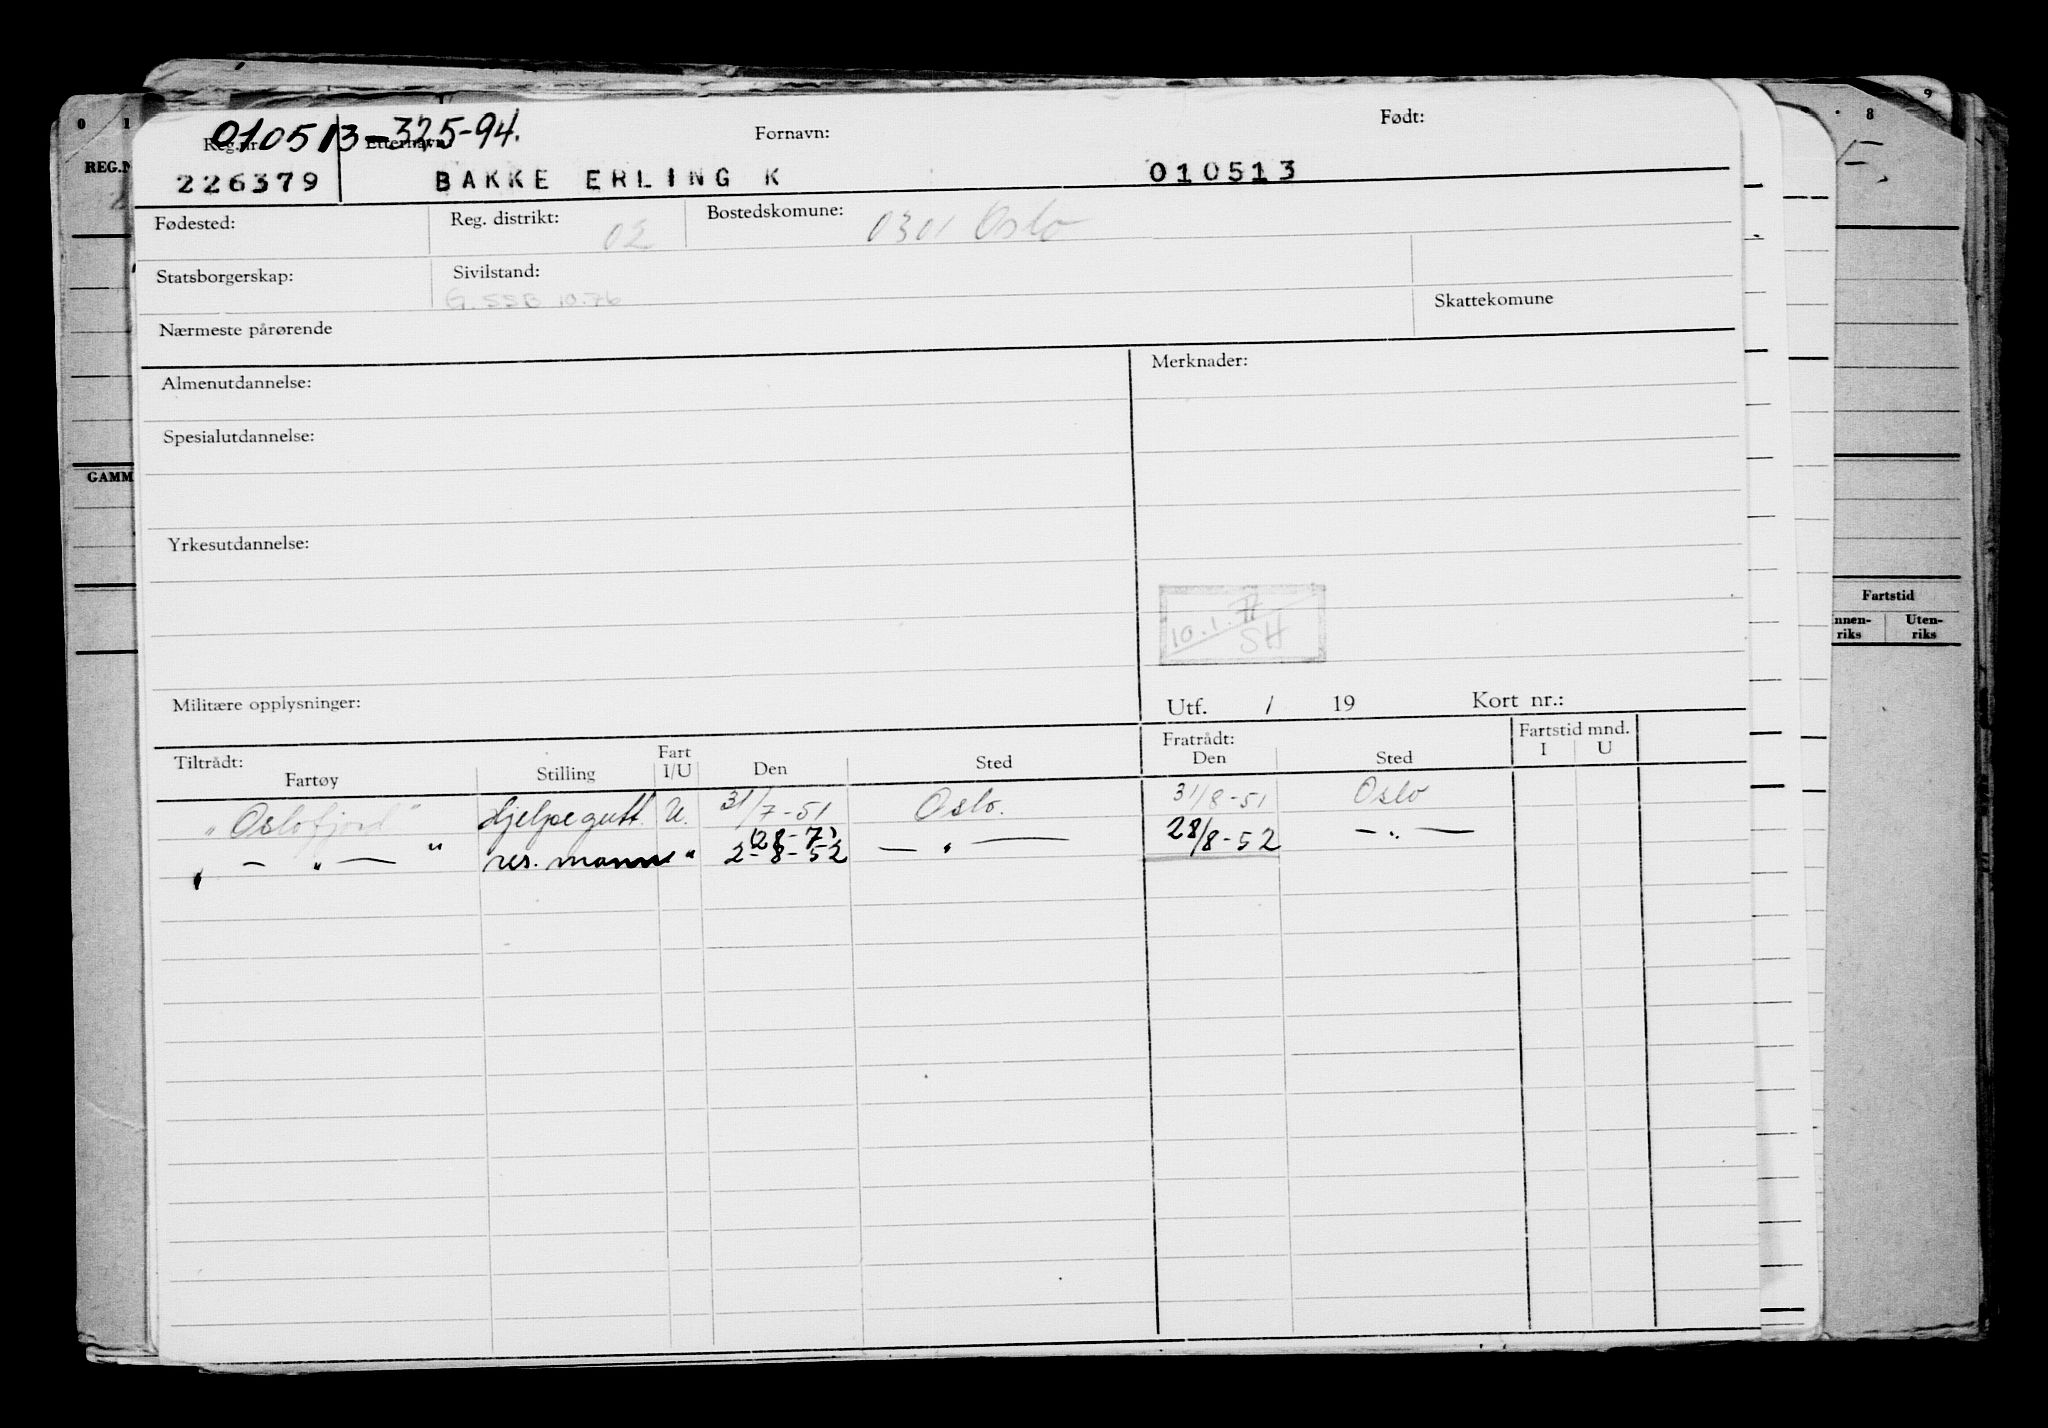 0 1 8 9
010513-325-94.
REG.N Reg.nr. Etternavn: Fornavn: Født:
226379 BAKKE ERLING K 010513
Fødested: Reg. distrikt: 02 Bostedskomune: 0301 Oslo
Statsborgerskap: Sivilstand:
G. SSB 10.76 Skattekomune
Nærmeste pårørende
Almenutdannelse: Merknader:
Spesialutdannelse:
GAMM
Yrkesutdannelse:
Fartstid
nnen-riks Uten-riks
10.1. SH
Militære opplysninger: Utf. / 19 Kort nr.:
Tiltrådt: Fratrådt: Fartstid mnd.
Fartøy Stilling Fart I/U Den Sted Den Sted I U
"Oslofjord" Hjelpegutt. U. 31/7-51 Oslo. 31/8-51 Oslo
28-7)
" — " — " res. mann " 2-8-52 — " — 28/8-52 — " —